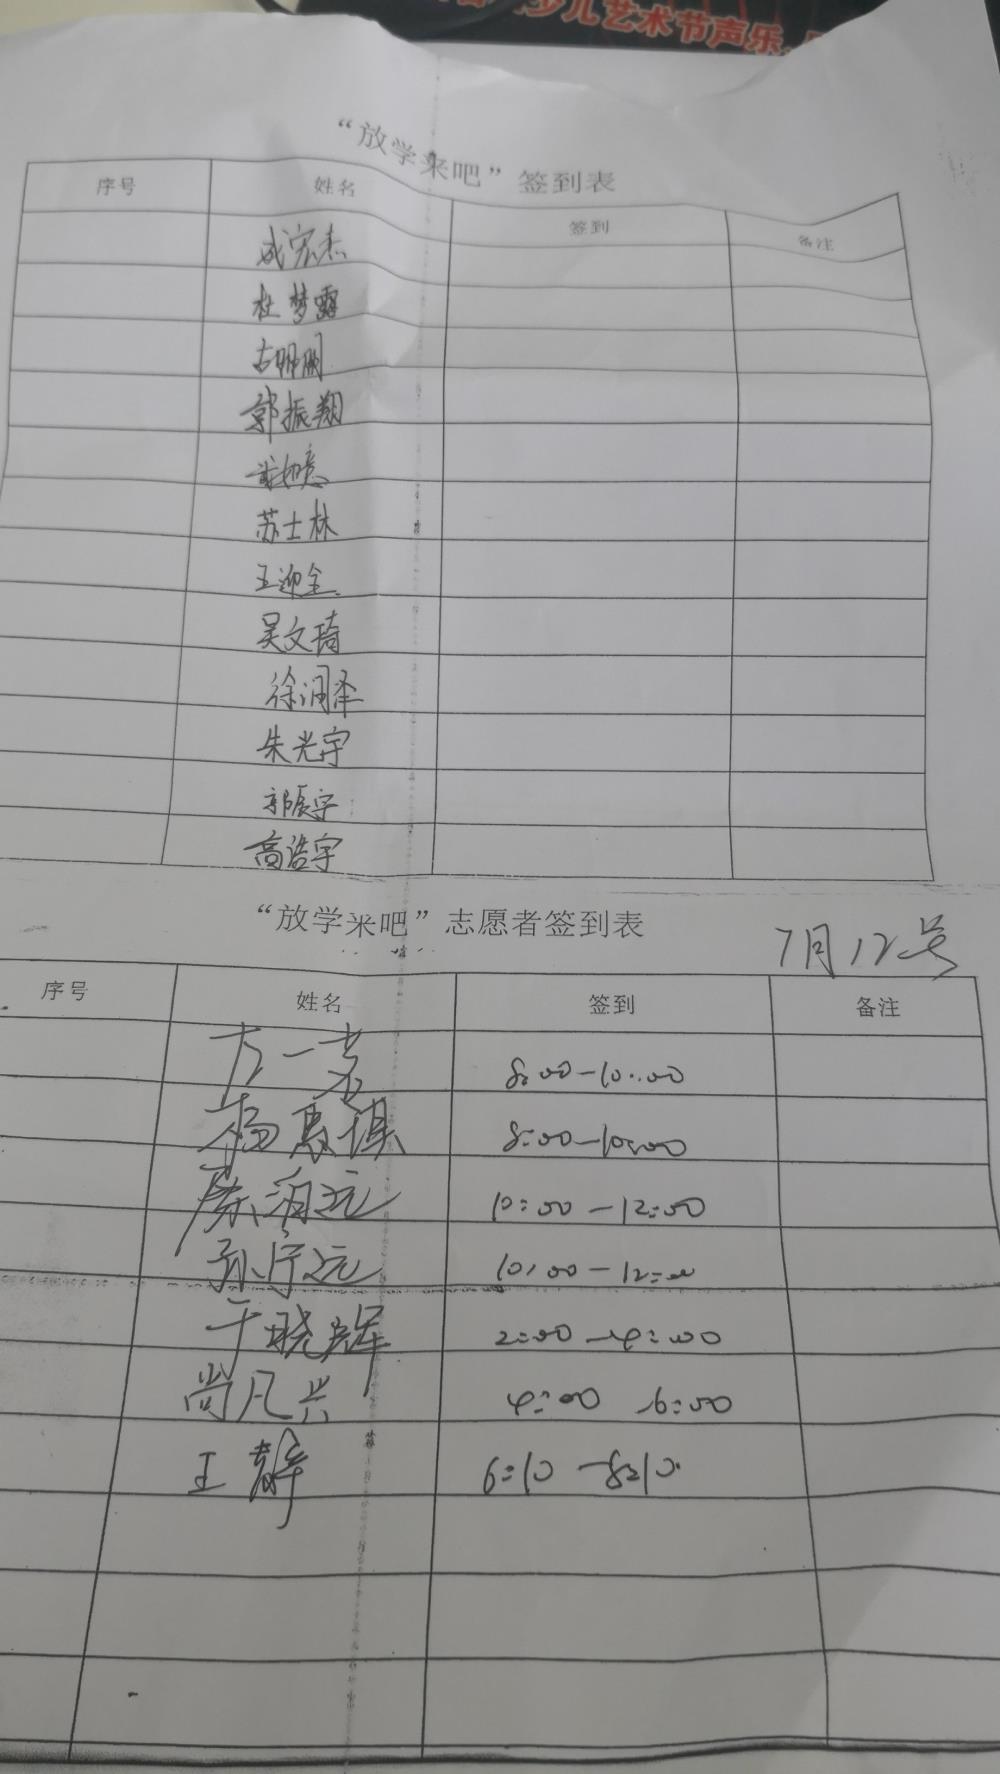 少儿艺术节声乐
“放学来吧”签到表
序号 姓名 签到 备注
成宏杰
杜梦露
古明月
郭振翔
如意
苏士林
王迎全
吴文琦
徐润泽
朱光宇
郭辰宇
高浩宇
“放学来吧”志愿者签到表
7月12号
序号 姓名 签到 备注
方一 8:00-10:00
杨惠棋 8:00-10:00
润远 10:00-12:00
孙宁远 10:00-12:00
于晓辉 2:00-4:00
尚凡兴 4:00 6:00
王静 6:10-8:10